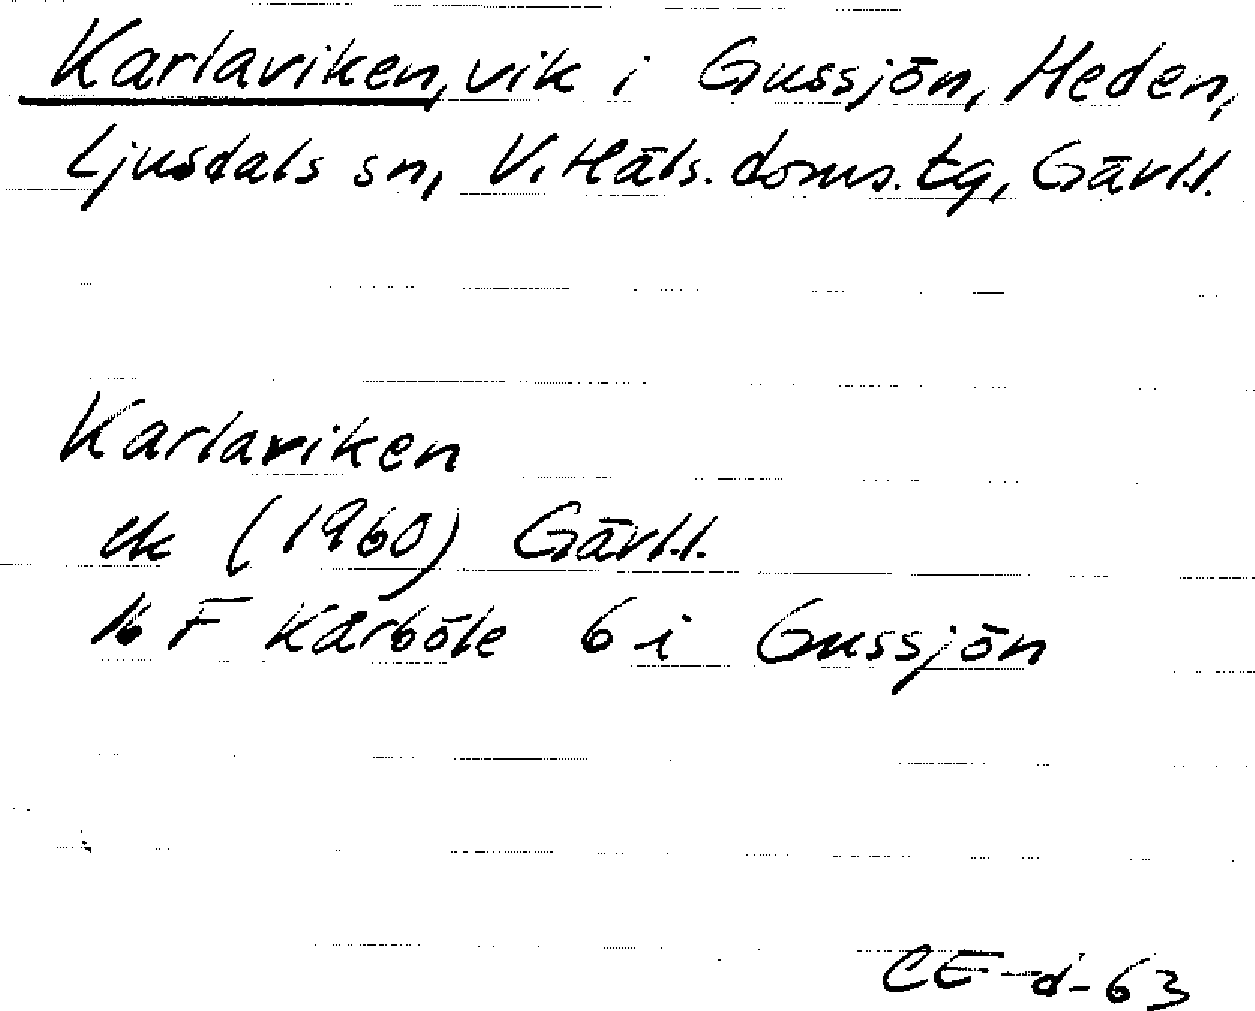 Karlaviken, vik i Gussjön, Heden,
Ljusdals sn, V. Häls. doms. tg, Gävl.l.
Karlaviken
ek (1960) Gävl.l.
16 F Kårböle 6 i Gussjön
CE-d-63